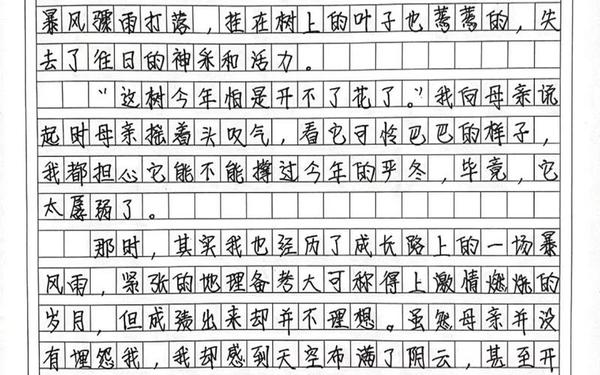 暴风骤雨打落，挂在树上的叶子也蔫蔫的，失
去了往日的神采和活力。
“这树今年怕是开不了花了。”我向母亲说
起时母亲摇着头叹气，看它可怜巴巴的样子，
我都担心它能不能撑过今年的严冬，毕竟，它
太孱弱了。
那时，其实我也经历了成长路上的一场暴
风雨，紧张的地理备考大可称得上激情燃烧的
岁月，但成绩出来却并不理想。虽然母亲并没
有埋怨我，我却感到天空布满了阴云，甚至开